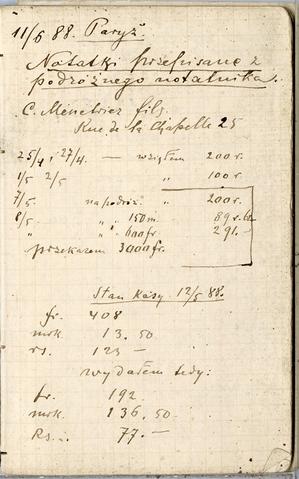 11/5 88. Paryż.
Notatki przepisane z
podróżnego notatnika.
C. Menetriez fils.
Rue de la Chapelle 25
25/4, 27/4. — wziąłem 200 r.
1/5 2/5 " 100 r.
7/5. na podróż. " 200 r.
8/5. " " 150 m. 89 r.
" " " 600 fr 291.—
przekazem 3000 fr.
Stan kasy 12/5 88.
fr. 408
mrk. 13.50
rs. 123 —
wydałem tedy:
fr. 192.
mrk. 136.50.
Rs.. 77.—